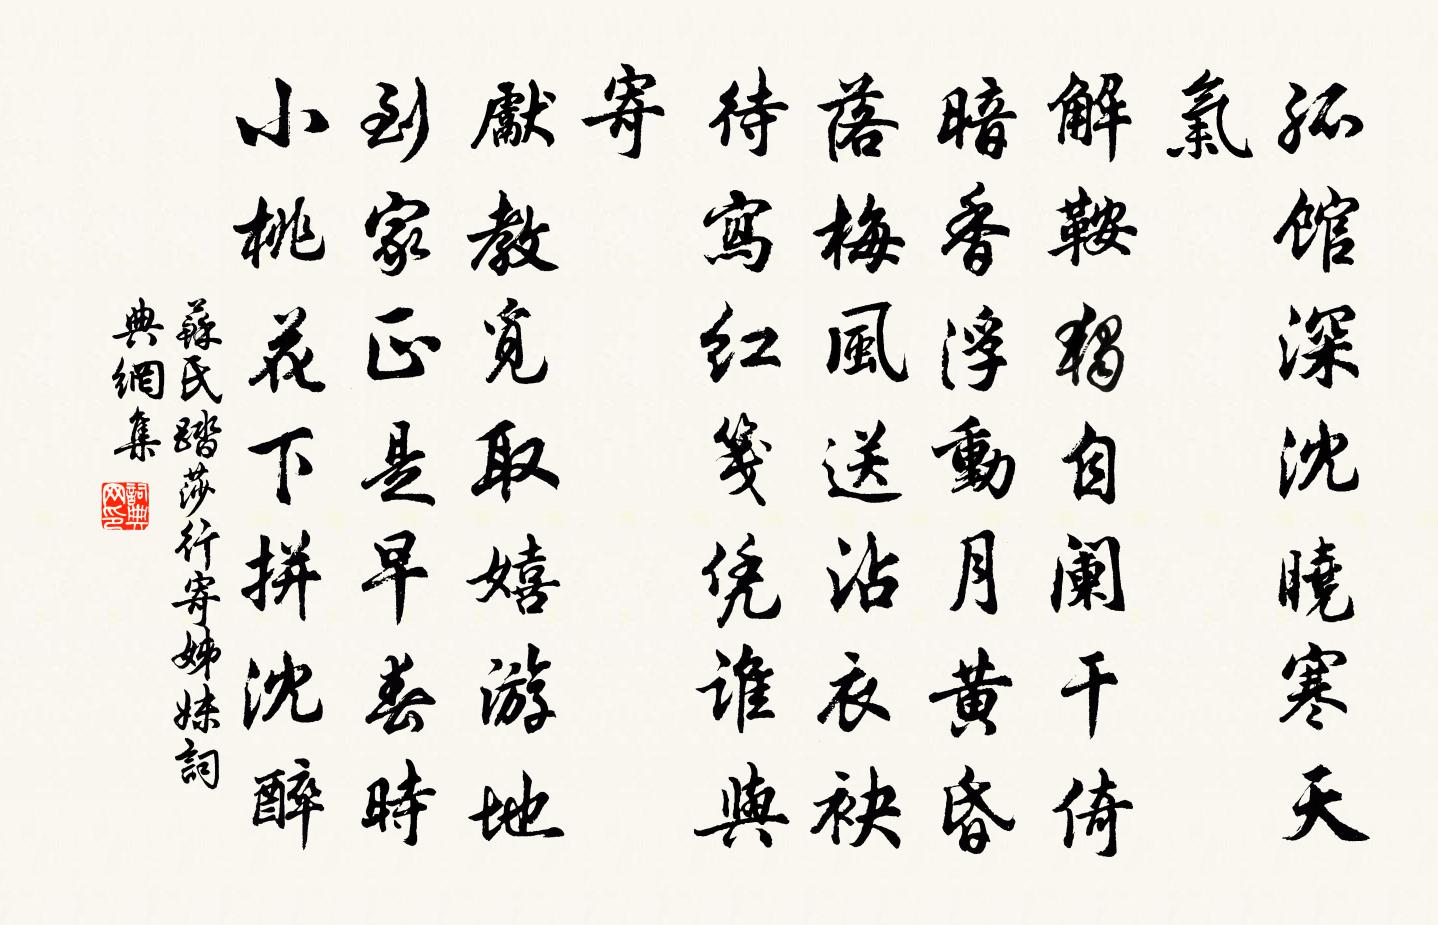 孤馆深沈曉寒天
氣
解鞍独自阑干倚
暗香浮動月黄昏
落梅風送沾衣袂
待寫红笺凭谁與
寄
獻教覓取嬉游地
到家正是早春時
小桃花下拼沈醉
蘇氏踏莎行寄姊妹詞
典網集
詞典
网印